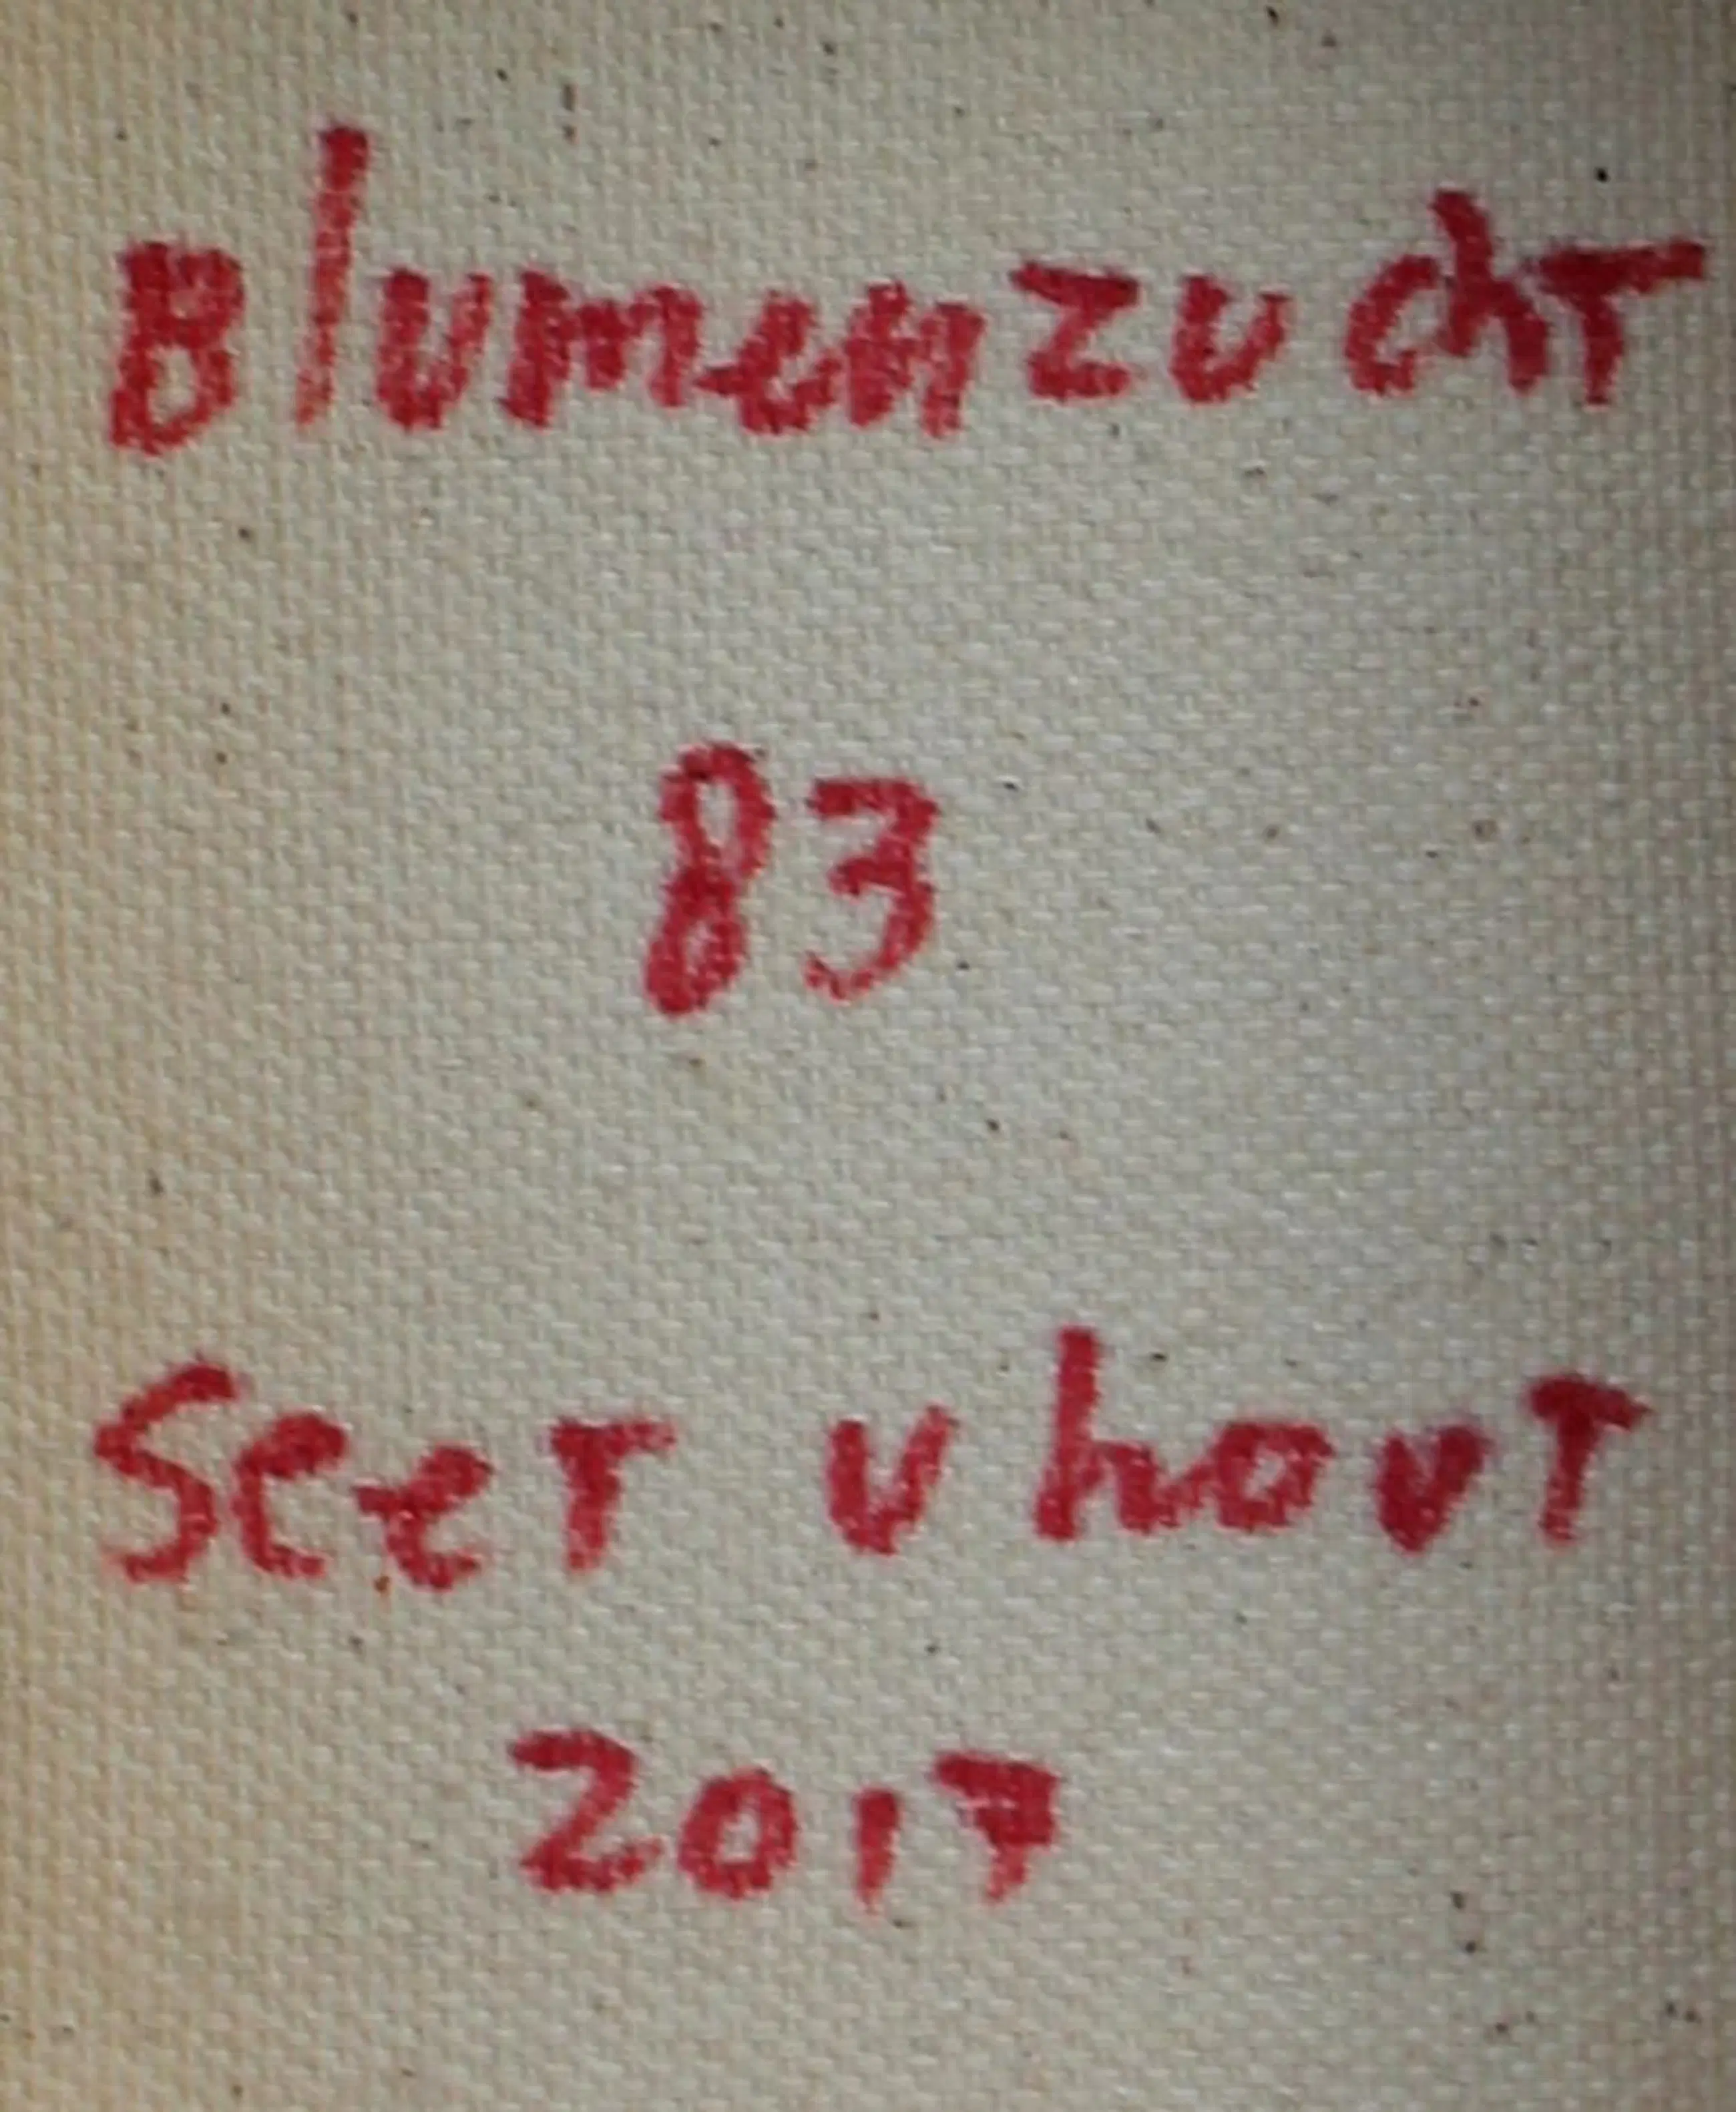 Blumenzucht
83
Seet vhout
2017